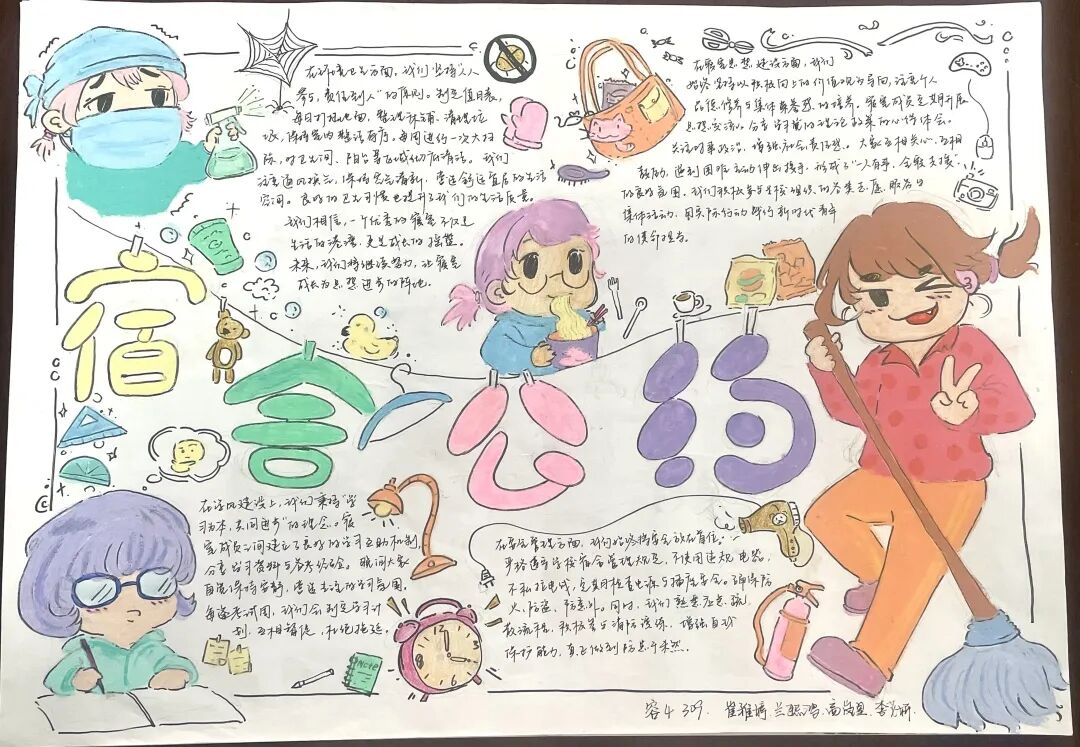 宿舍公约
在环境卫生方面，我们坚持“人人
参与，责任到人”的原则。制定值日表，
每日打扫地面，整理床铺，清理垃
圾，保持室内整洁有序。每周进行一次大扫
除，对卫生间、阳台等区域彻底清洁。我们
注重通风换气，保持空气清新，营造舒适宜居的生活
空间。良好的卫生习惯也提升了我们的生活质量。
我们相信，一个优秀的寝室不仅是
生活的港湾，更是成长的摇篮。
未来，我们将继续努力，让寝室
成长为思想进步的阵地。
在寝室思想建设方面，我们
始终坚持以积极向上的价值观为导向，注重个人
品德修养与集体荣誉感的培养，寝室成员定期开展
思想交流，分享学习的理论政策的心得体会。
关注时事政治，增强社会责任感。大家互相关心、互相
鼓励，遇到困难主动伸出援手，形成了“一人有事，全寝支援”
的良好氛围。我们积极参与学校组织的各类志愿服务
集体活动，用实际行动践行新时代青年
的使命担当。
在学风建设上，我们秉持“学
习为本，共同进步”的理念。寝
室成员之间建立了良好的学习互助机制，
分享学习资料与备考经验。晚间大家
自觉保持安静，营造专注的学习氛围，
每逢考试周，我们会制定学习计
划，互相督促，杜绝拖延。
在安全管理方面，我们始终将安全放在首位。
严格遵守学校宿舍管理规定，不使用违规电器，
不私拉电线，定期检查电源与插座安全。确保防
火、防盗、防意外。同时，我们熟悉应急疏
散流程，积极参与消防演练，增强自我
保护能力，真正做到防患于未然。
NOTE
12
3
6
容4 309.